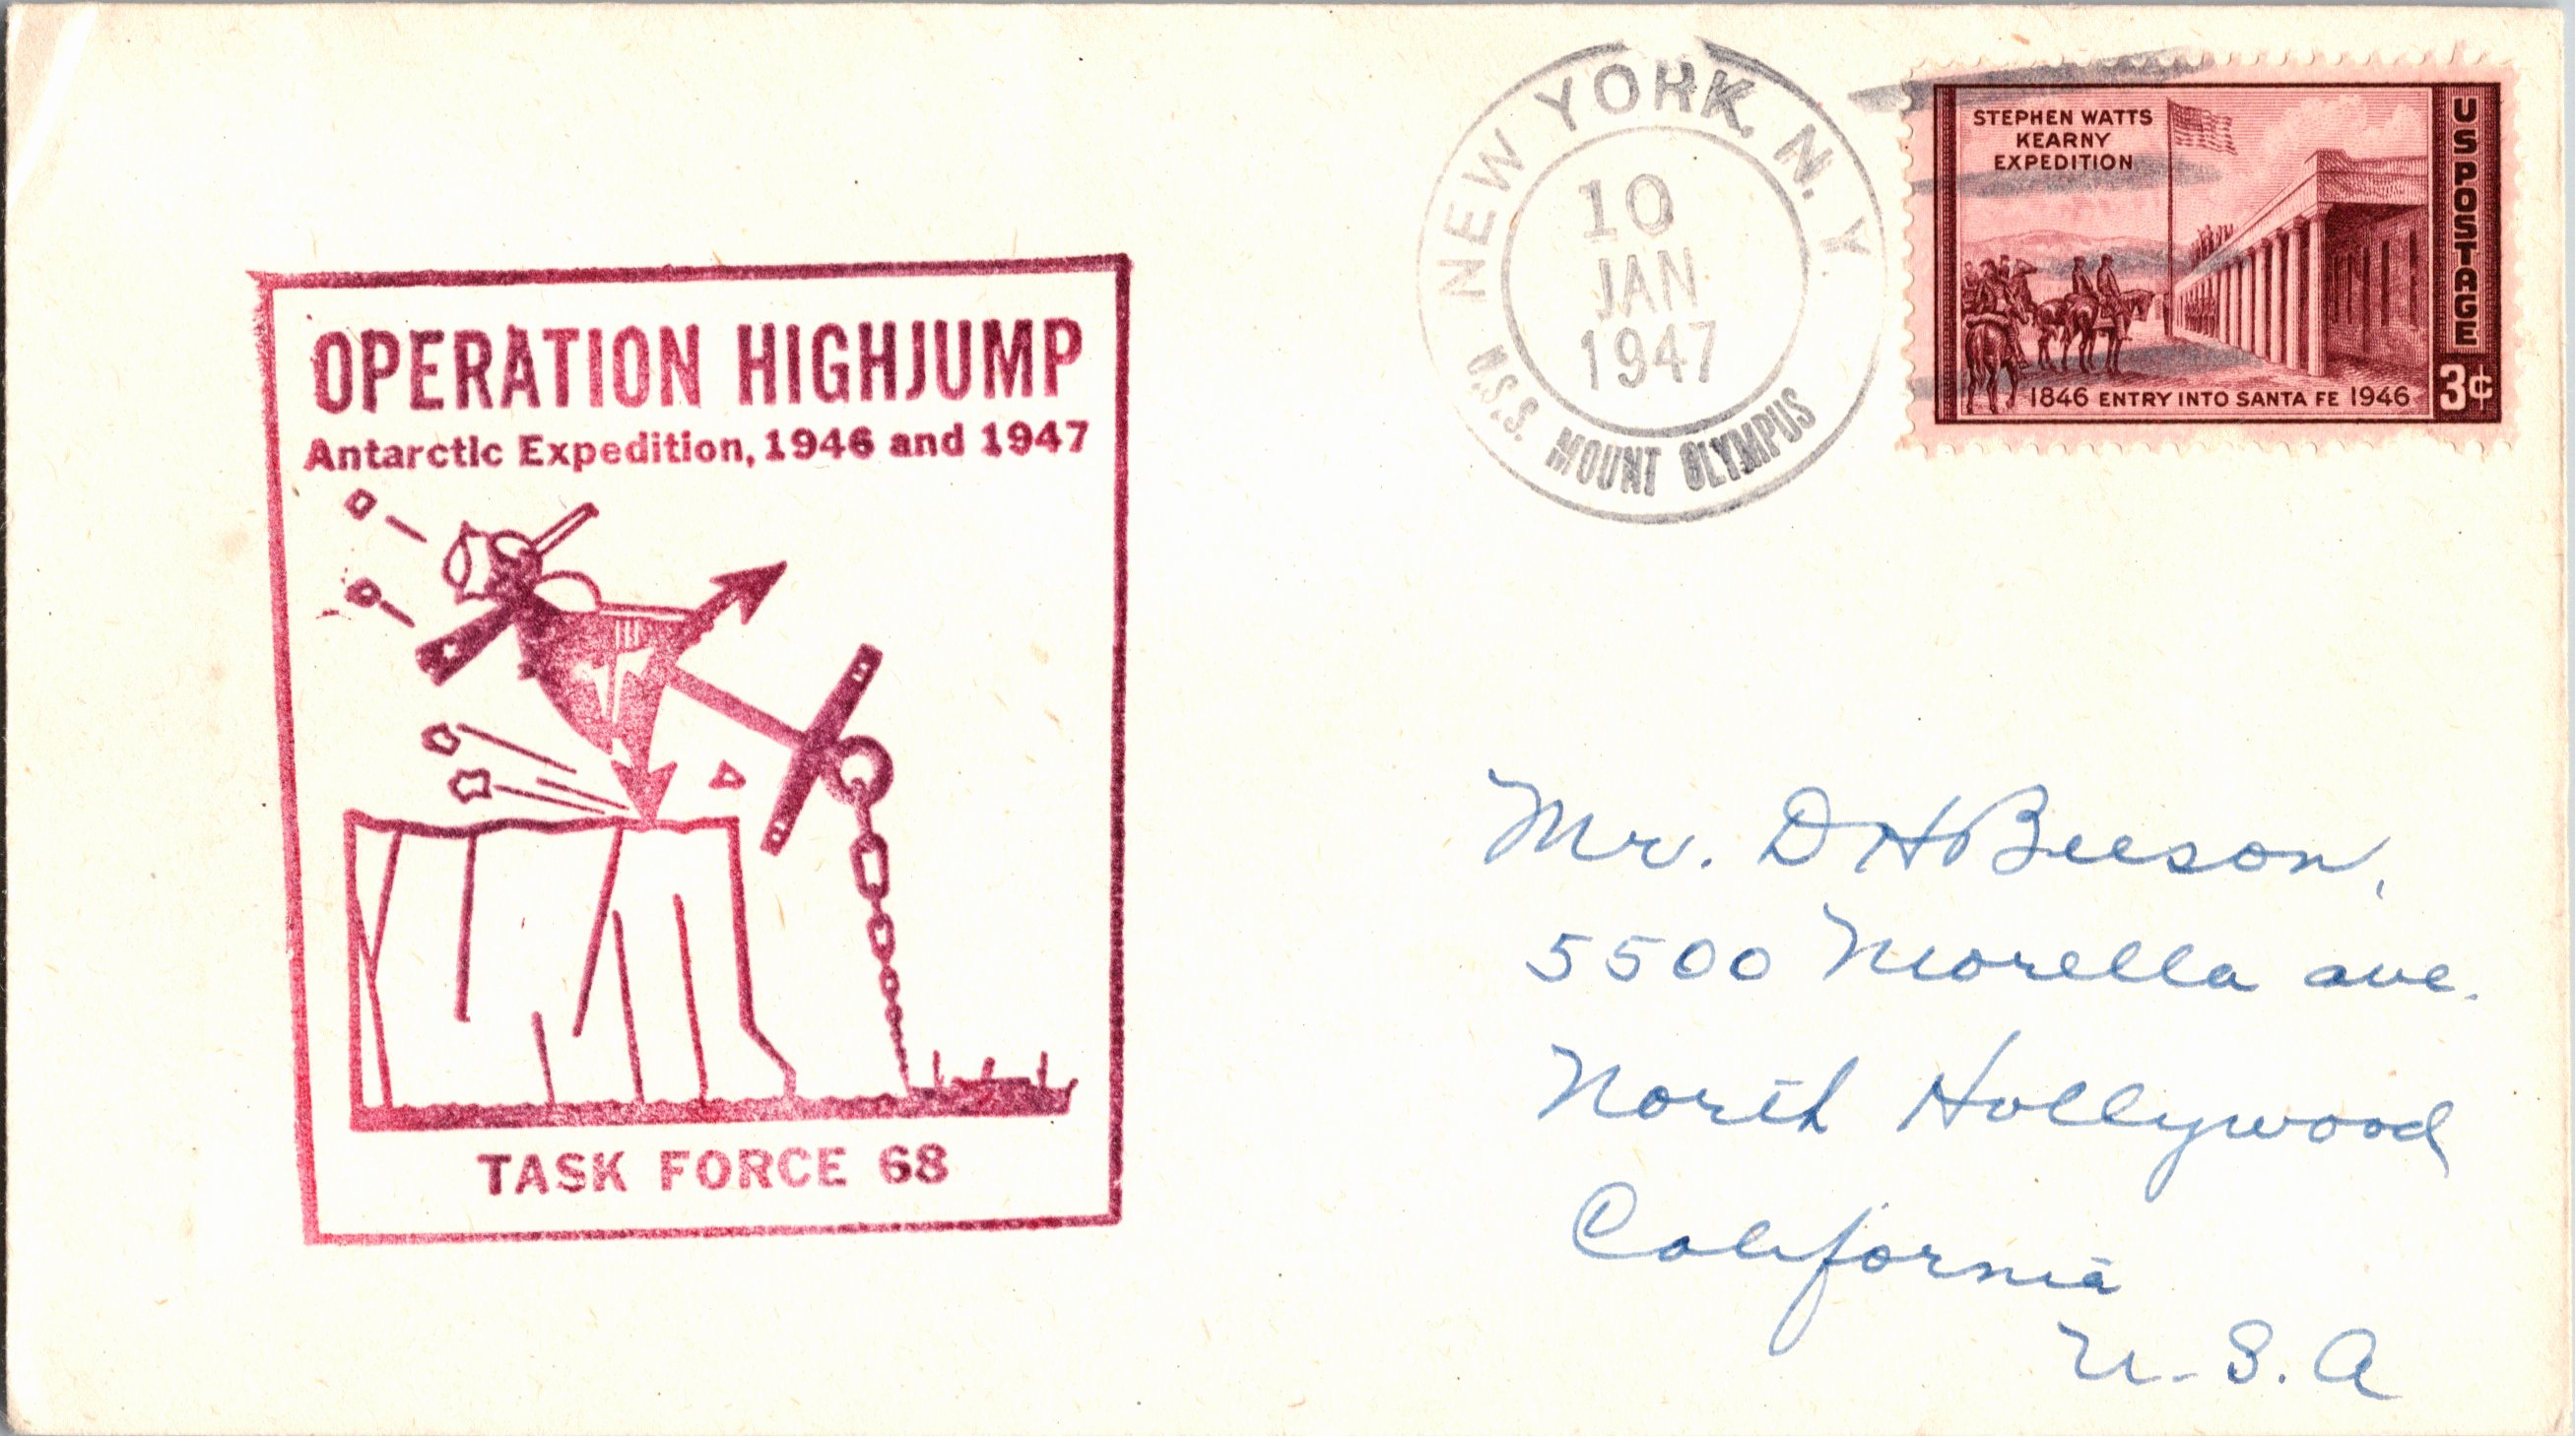 OPERATION HIGHJUMP
Antarctic Expedition, 1946 and 1947
TASK FORCE 68
NEW YORK, N.Y.
10
JAN
1947
U.S.S. MOUNT OLYMPUS
STEPHEN WATTS
KEARNY
EXPEDITION
US POSTAGE
1846 ENTRY INTO SANTA FE 1946
3¢
Mr. D H Beeson,
5500 Morella ave.
North Hollywood
California
U.S.A